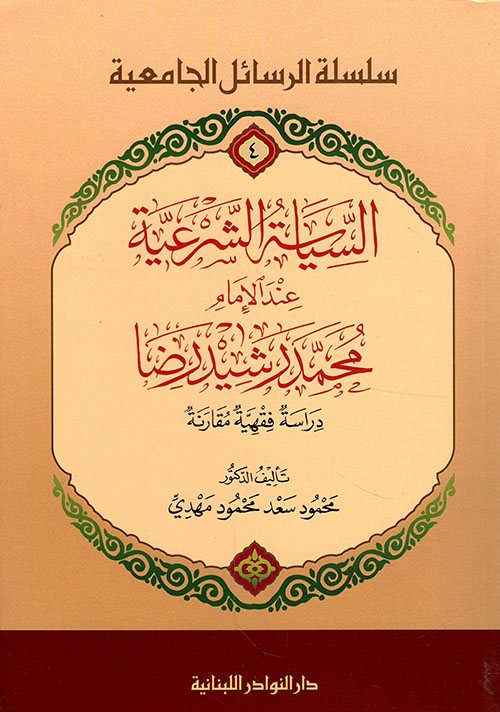 سلسلة الرسائل الجامعية
٤
السِّيَاسَةُ الشَّرْعِيَّة
عِنْدَ الإِمَامِ
مُحَمَّد رَشِيْد رِضَا
دِرَاسَةٌ فِقْهِيَّةٌ مُقَارَنَةٌ
تَأْلِيْفُ الدَّكْتُوْر
مَحْمُود سَعْد مَحْمُود مَهْدِيّ
دار النوادر اللبنانية